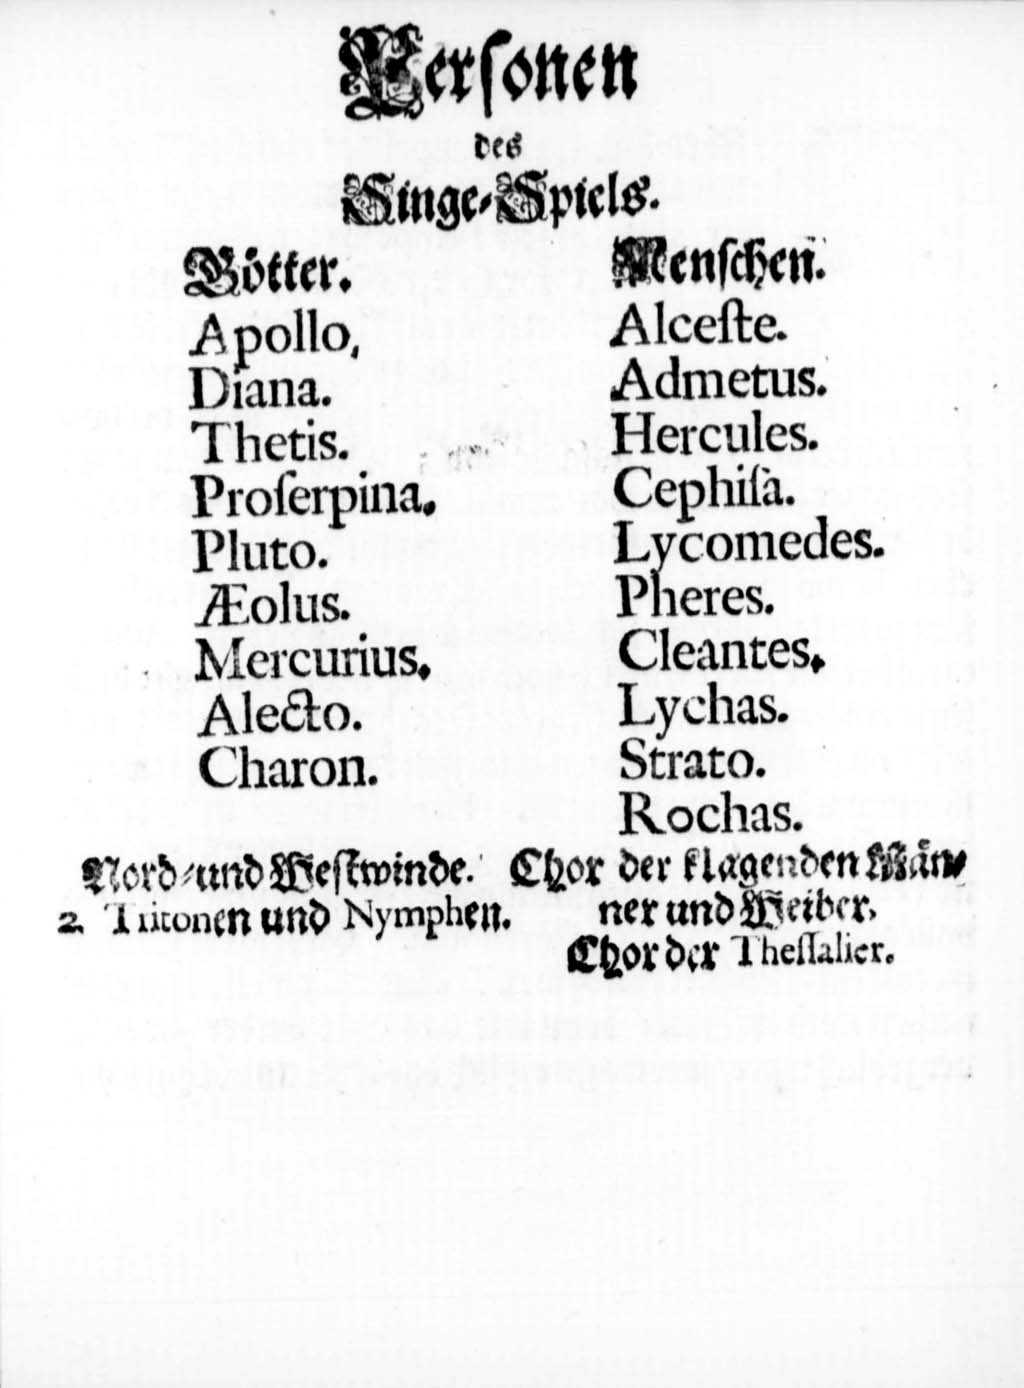 Perſonen
des
Singe-Spiels.
Götter.
Apollo,
Diana.
Thetis.
Proſerpina.
Pluto.
Æolus.
Mercurius.
Alecto.
Charon.
Nord- und Weſtwinde.
2. Tritonen und Nymphen.
Menſchen.
Alceſte.
Admetus.
Hercules.
Cephiſà.
Lycomedes.
Pheres.
Cleantes.
Lychas.
Strato.
Rochas.
Chor der klagenden Män-
ner und Weiber.
Chor der Theſſalier.